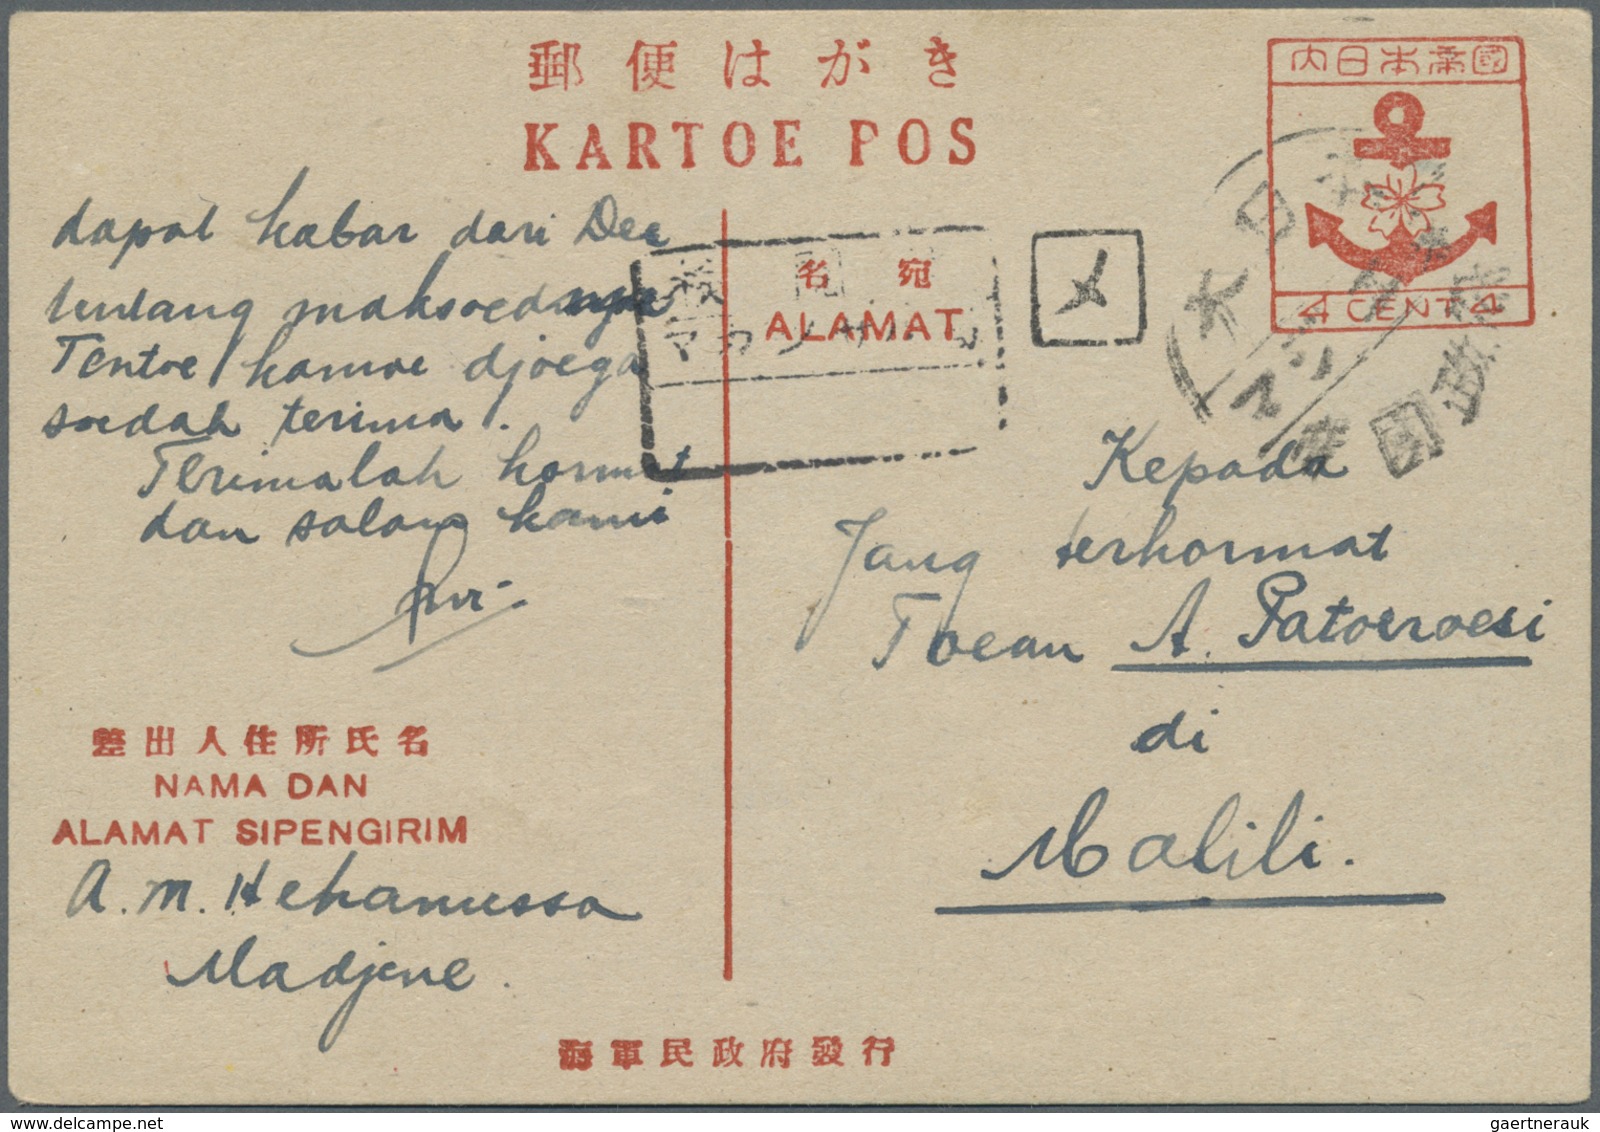 郵便はがき
KARTOE POS
大日本帝國
4 CENT 4
名宛
ALAMAT
検閲済
マカッサル
メ
dapat kabar dari Dee
tentang maksoednya
Tentoe kamoe djoega
soedah terima.
Terimalah hormat
dan salam kami
差出人住所氏名
NAMA DAN
ALAMAT SIPENGIRIM
A. M. Hehanussa
Madjene.
Kepada
Jang terhormat
Toean A. Patoeroesi
di
Malili.
海軍民政府發行
gaertnerauk